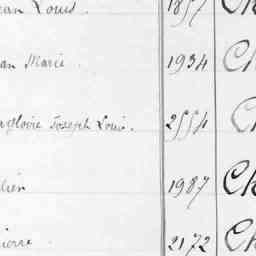 ean Louis 1857 Ch
an Marie 1934 C
Joseph Louis. 2554 C
lien 1987 Ch
ierre 2172 Ch